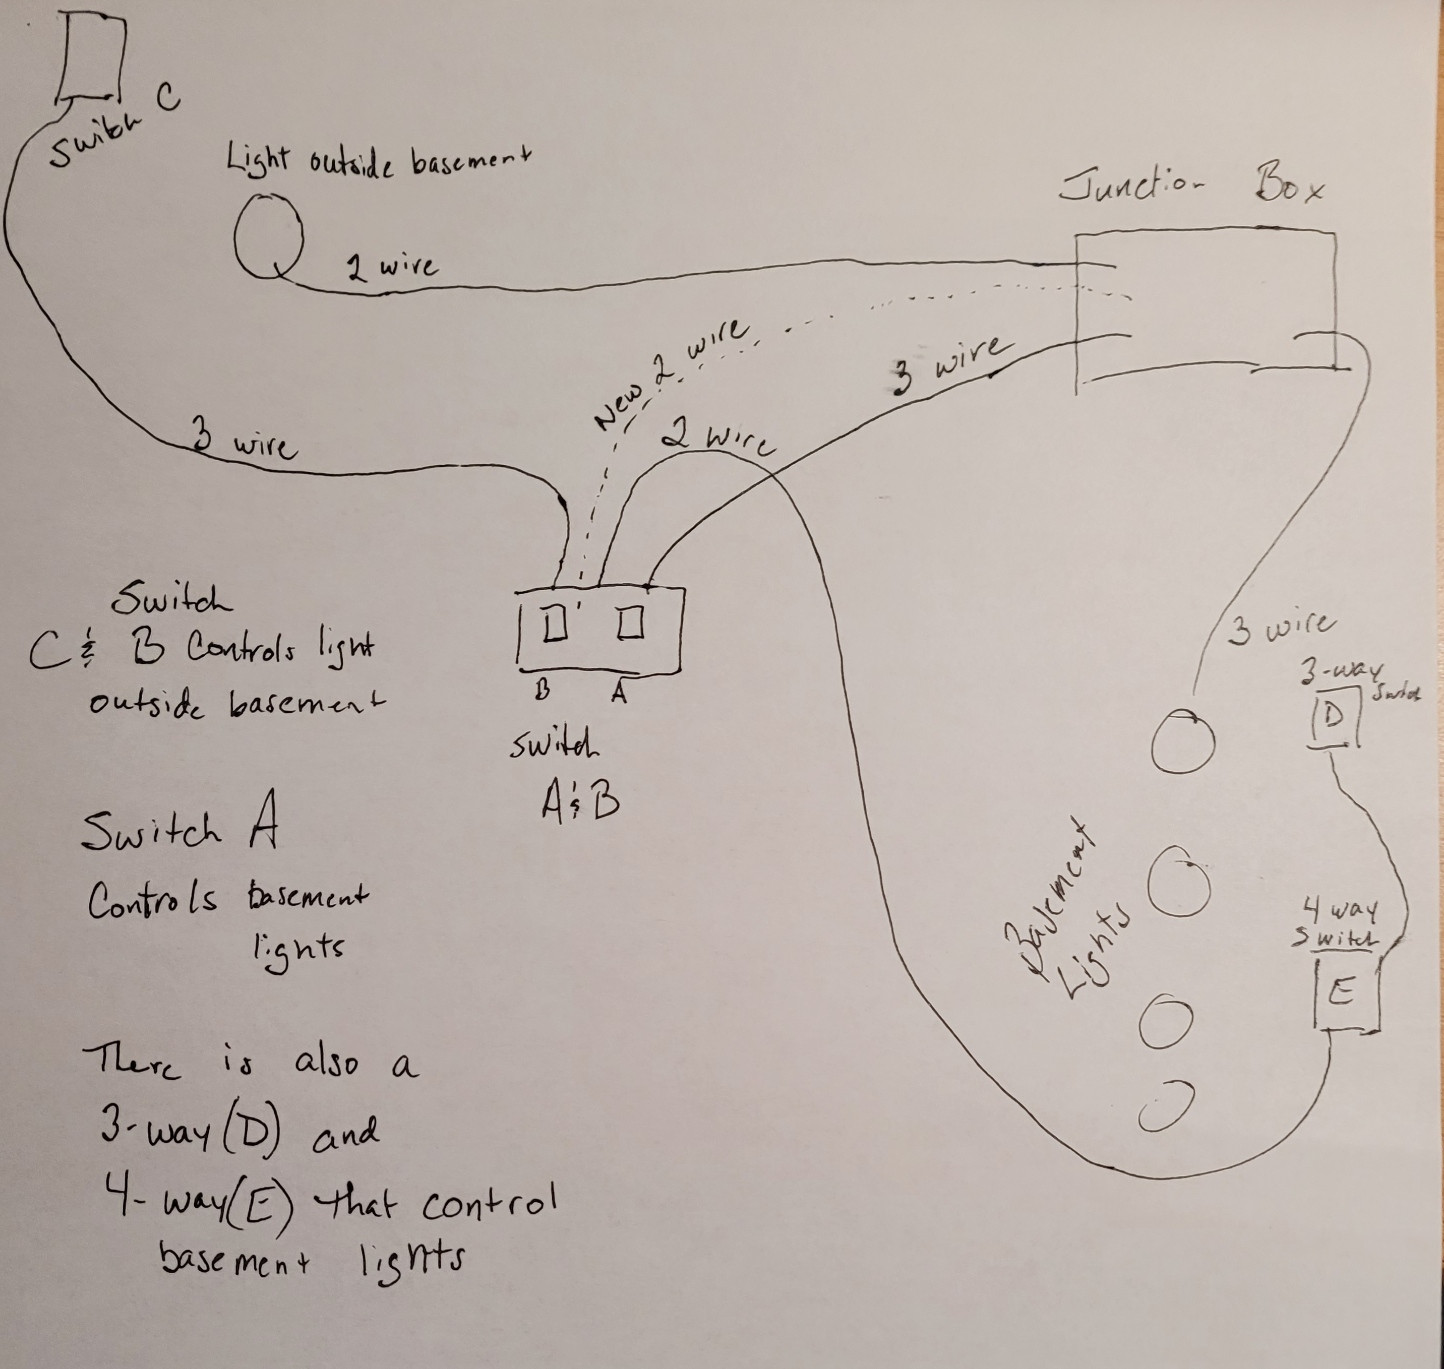 Switch C
Light outside basement
Junction Box
2 wire
New 2 wire
3 wire
2 wire
3 wire
3 wire
3-way
Switch
D
B A
Switch
A & B
4 way
Switch
E
Basement
Lights
Switch
C & B Controls light
outside basement
Switch A
Controls basement
lights
There is also a
3-way (D) and
4-way (E) that control
basement lights